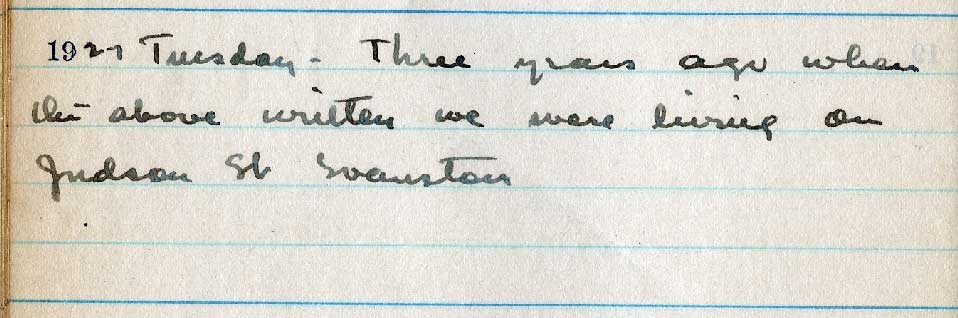 1927 Tuesday - Three years ago when
the above written we were living on
Judson St Evanston